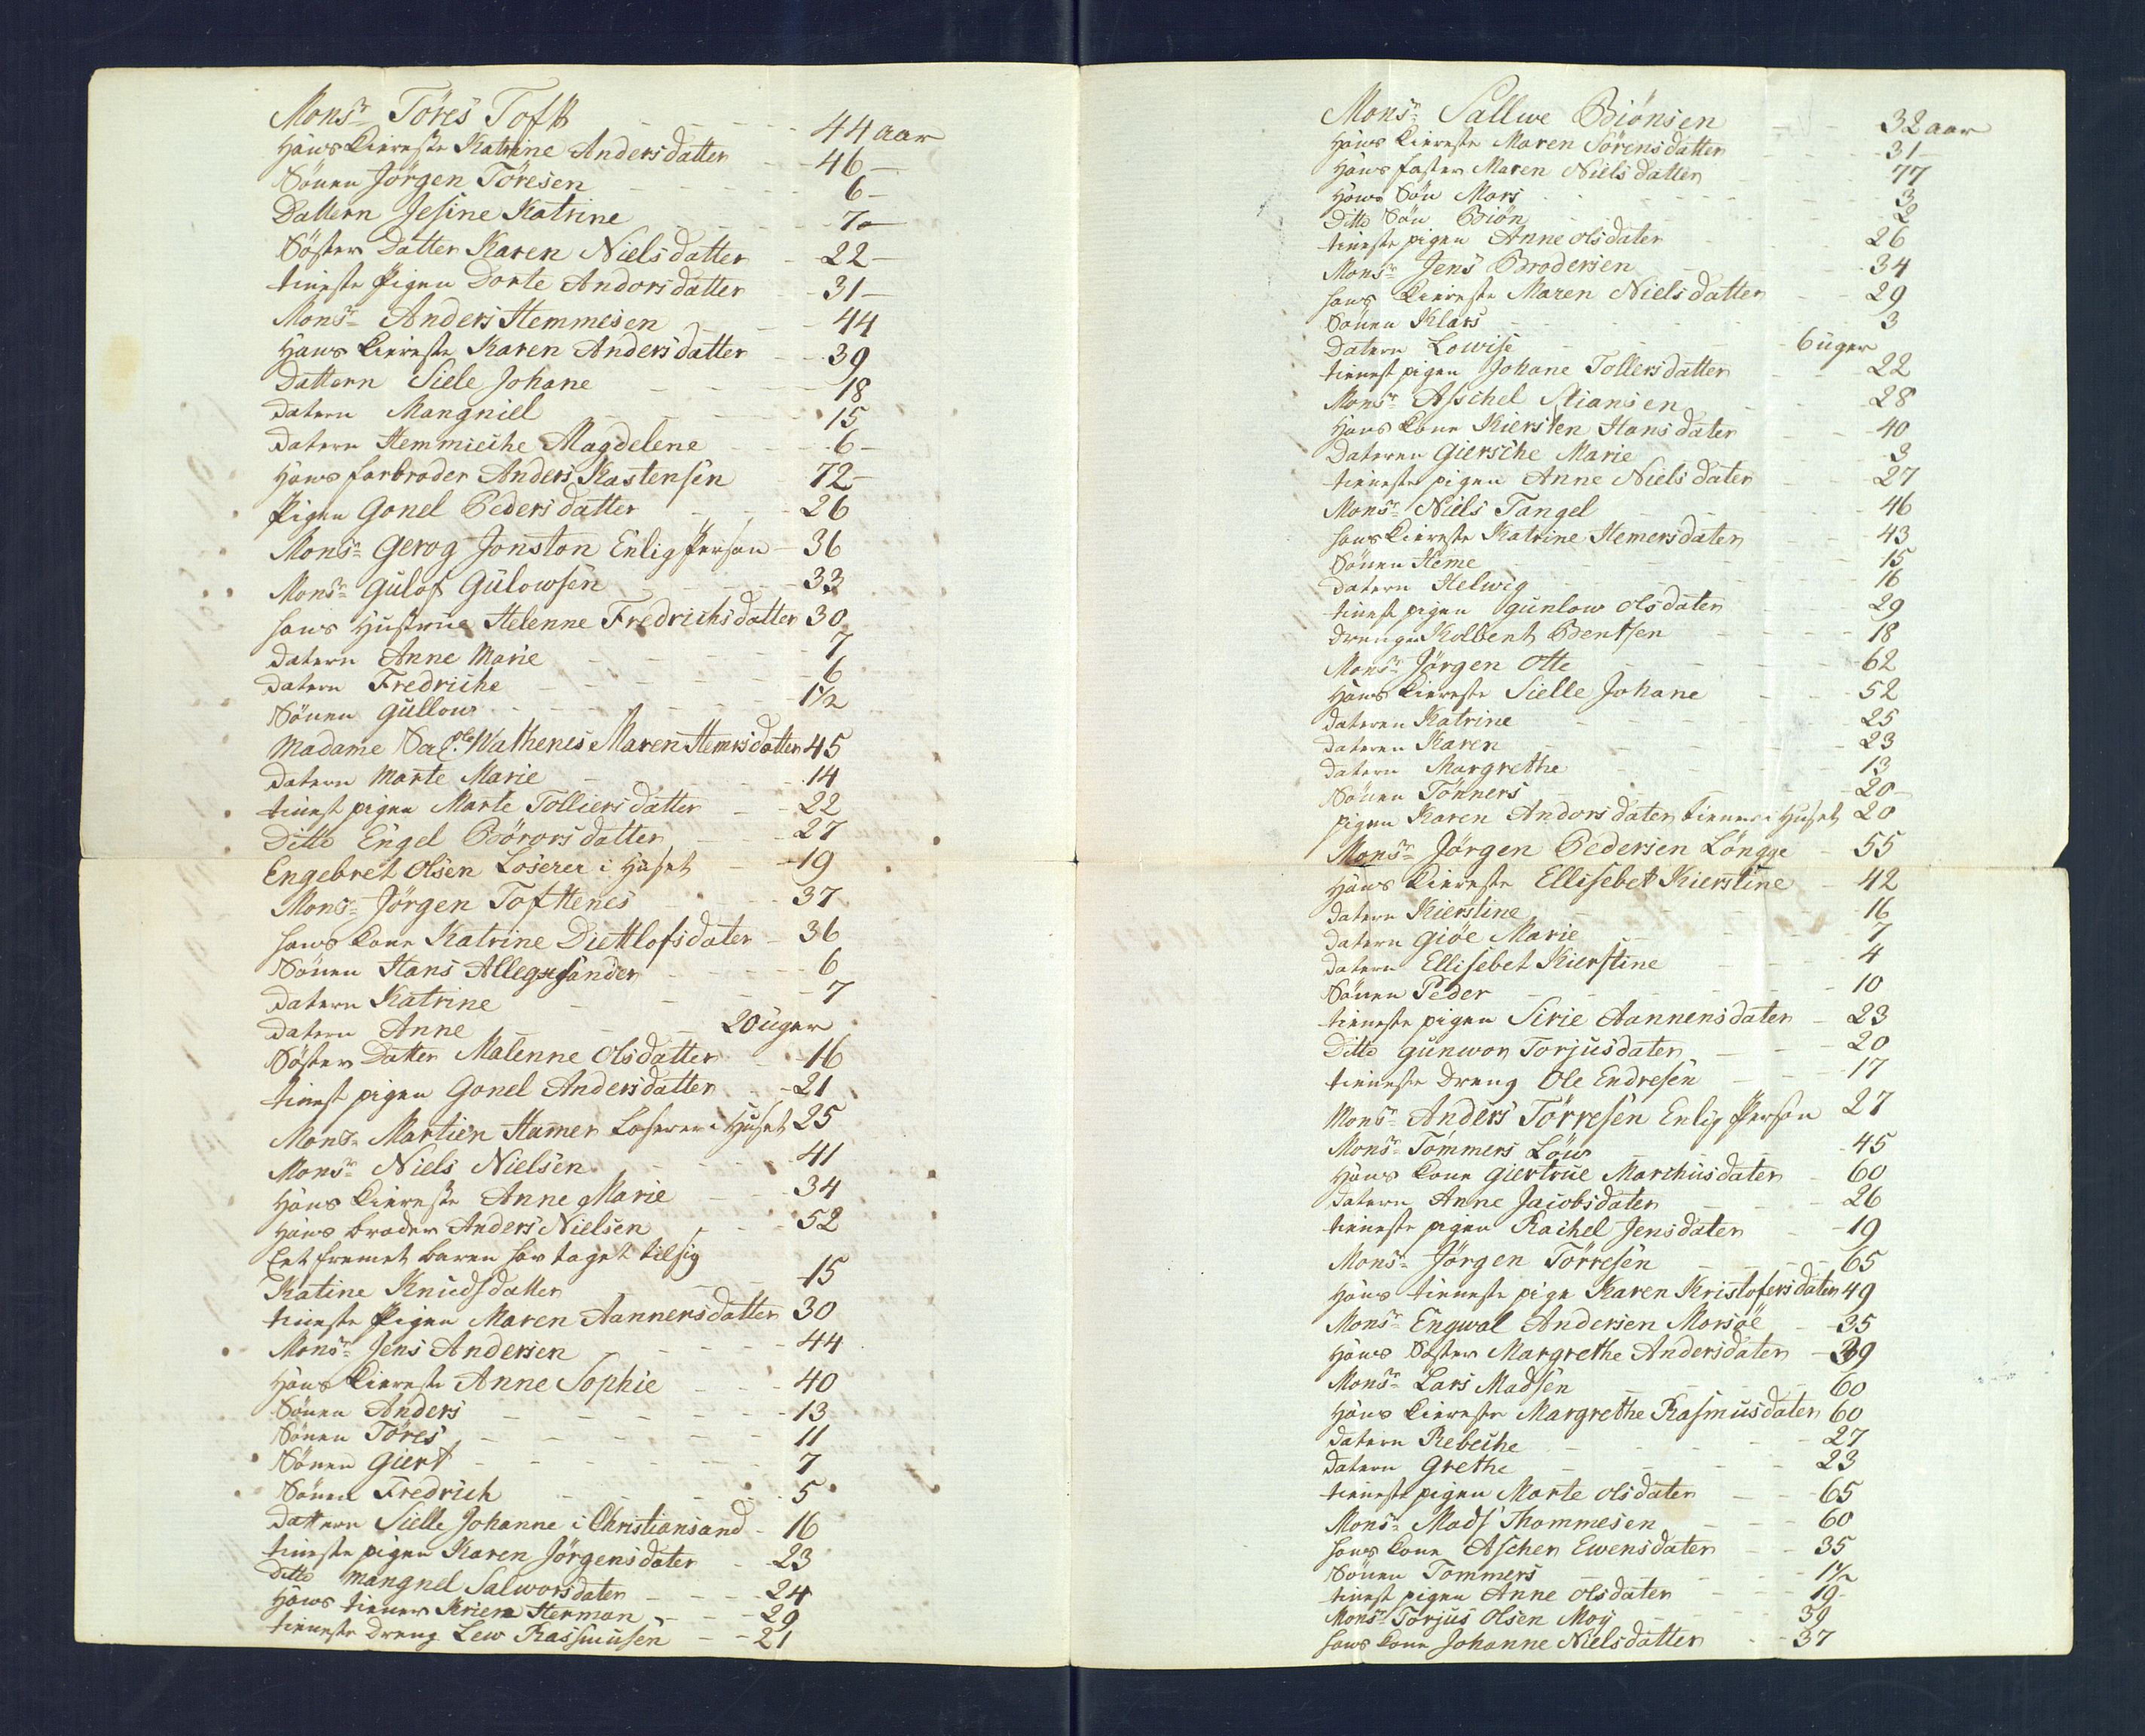 Monsr Töres Toft - - - 44 aar
Hans Kiereste Katrine Andersdatter - - 46 -
Sönen Jörgen Töresen - - - 6 -
Dattern Jesine Katrine - - - 7 -
Söster Datter Karen Nielsdatter - 22 -
tieneste Pigen Dorte Andorsdatter - 31 -
Monsr Anders Hemmesen - - - 44
Hans Kiereste Karen Andersdatter - - 39
Dattern Siele Johane - - - 18
datern Mangniel - - - 15
datern Hemmiche Magdelene - - - 6 -
Hans farbroder Anders Kastensen 72 -
Pigen Gonel Pedersdatter - - - 26
Monsr Gerog Jonston Enlig Person - 36
Monsr Gulof Gülowsen - - - 33
hans Hustrue Helenne Fredrichsdatter 30
datern Anne Marie - - - 7
datern Fredriche - - - 6
Sönen Gullow - - - 1 1/2
Madame Sal. Ole Wathenes Maren Hemrsdatter 45
datern Marte Marie - - - 14
tienest pigen Marte Tolliersdatter - - 22
Ditto Engel Börorsdatter - - 27
Engebret Olsen Loserer i Huset - - 19
Monsr Jörgen Tofttenes - - - 37
hans Kone Katrine Diettlofsdater - 36
Sönen Hans Allegxsander - - - 6
datern Katrine - - - 7
datern Anne - - - 20 uger
Söster Datter Malenne Olsdatter - - 16
tienest pigen Gonel Andersdatter - - 21
Monsr Martien Hamer Loserer i Huset 25
Monsr Niels Nielsen - - - 41
Hans Kiereste Anne Marie - - - 34
Hans broder Anders Nielsen - - - 52
Eet fremet baren hav taget tilsig
Katine Knudsdatter - - - 15
tieneste Pigen Maren Aannersdatter 30
Monsr Jens Andersen - - - 44
Hans Kiereste Anne Sophie - - - 40
Sönen Anders - - - 13
Sönen Töres - - - 11
Sönen Giert - - - 7
Sönen Fredrich - - - 5
dattern Sielle Johanne i Christiansand - 16
tieneste pigen Karen Jörgensdater - 23
ditto Mangnel Salworsdater - - 24
Hans tiener Herman - - - 29
tieneste Dreng Lew Rassmusen - - 21
Monsr Sallwe Biönsen - - 32 aar
Hans Kiereste Maren Sörensdatter - - 31 -
Hans faster Maren Nielsdatter - 77
Hans Sön Mars - - - 3
Ditto Sön Biön - - - 2
tieneste pigen Anne Olsdater - 26
Monsr Jens Brodersen - - 34
hans Kiereste Maren Nielsdatter - - 29
Sönen Klars - - - 3
Datern Lowise - - - 6 uger
tienest pigen Johane Tollersdatter - - 22
Monsr Asschel Stiansen - - 28
Hans Kone Kiersten Hansdater - - 40
Dateren Giersche Marie - - 3
tieneste pigen Anne Nielsdater - - 27
Monsr Niels Tangel - - - 46
hans Kiereste Katrine Hemersdater - 43
Sönen Heme - - - 15
datern Helwig - - - 16
tienest pigen Gunlow Olsdater - 29
drengen Kolbent Bentsen - - - 18
Monsr Jörgen Otte - - - 62
Hans Kiereste Sielle Johane - - - 52
dateren Katrine - - - 25
dateren Karen - - - 23
datern Margrethe - - - 13
Sönen Tönners - - - 20 -
pigen Karen Andorsdater tiener i Huset 20
Monsr Jörgen Pedersen Löngge - 55
Hans Kiereste Ellisebet Kierstine - 42
datern Kierstine - - - 16
datern Giöe Marie - - - 7
datern Ellisebet Kierstine - - - 4
Sönen Peder - - - 10
tieneste pigen Sirie Aannensdater - 23
Ditto Gunwor Torjusdater - - - 20
tieneste Dreng Ole Endresen - - - 17
Monsr Anders Törresen Enlig Person 27
Monsr Tömmers Löw - - - 45
Hans Kone Giertrue Marchusdater - 60
datern Anne Jacobsdater - - - 26
tieneste pigen Rachel Jensdater - 19
Monsr Jörgen Törresen - - - 65
Hans tieneste pige Karen Kristofersdater 49
Monsr Engwal Andersen Morsöe - 35
Hans Söster Margrethe Andersdater - 39
Monsr Lars Madsen - - - 60
Hans Kiereste Margrethe Rasmusdater 60
datern Rebeche - - - 27
datern Grethe - - - 23
tieneste pigen Marte Olsdater - - 65
Monsr Mads Thommesen - - - 60
hans Kone Ascher Ewensdater - - 35
Sönen Tommers - - - 1 1/2
tienest pigen Anne Olsdater - - - 19
Monsr Torjus Olsen Moy - - - 39
hans Kone Johanne Nielsdatter - - 37